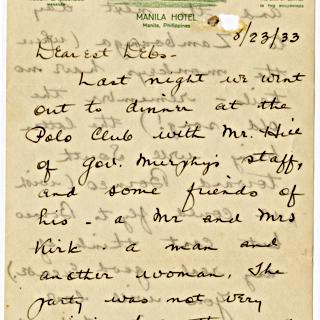 MANAGER
MANILA HOTEL
IN THE PHILIPPINES
Manila, Philippines
8/23/33
Dearest Debs-
Last night we went
out to dinner at the
Polo Club with Mr. Hill
of Gov. Murphy's staff,
and some friends of
his - a Mr and Mrs
Kirk - a man and
another woman. The
party was not very